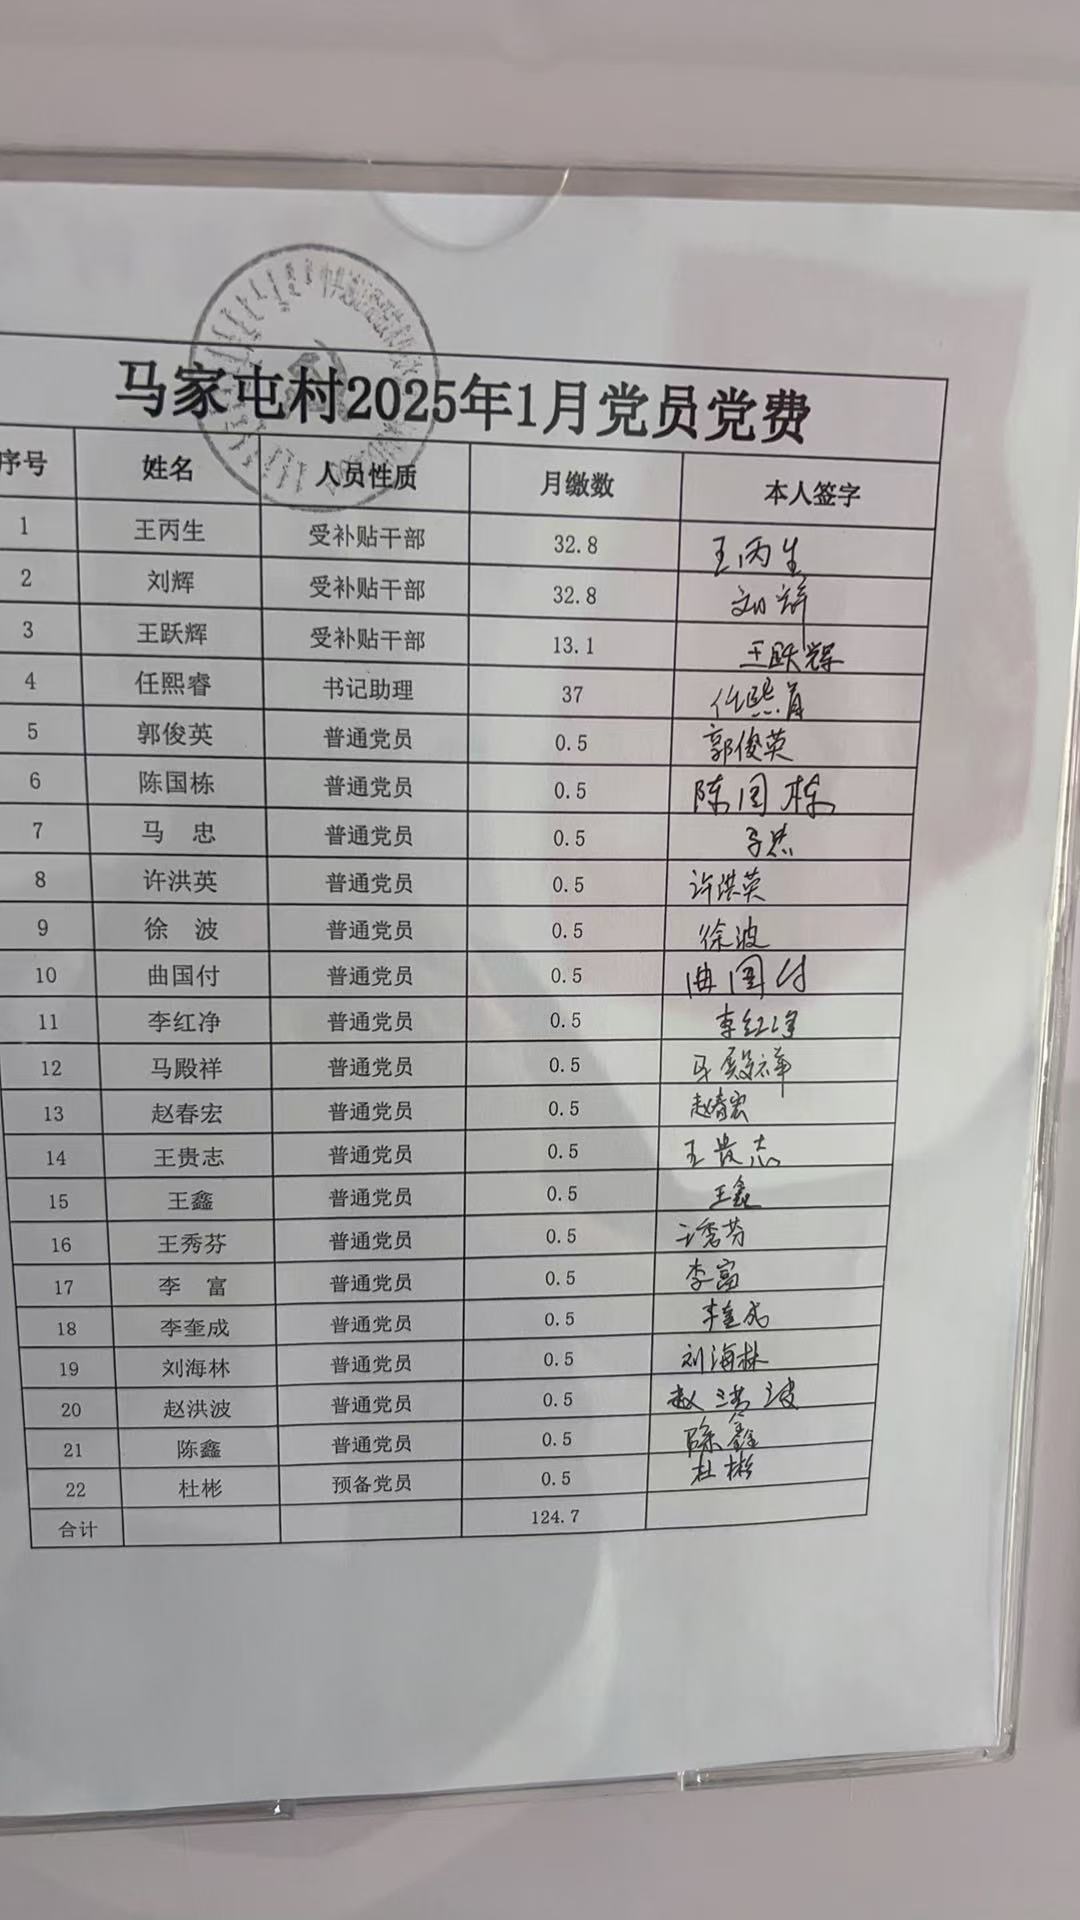 马家屯村2025年1月党员党费
序号 姓名 人员性质 月缴数 本人签字
1 王丙生 受补贴干部 32.8 王丙生
2 刘辉 受补贴干部 32.8 刘辉
3 王跃辉 受补贴干部 13.1 王跃辉
4 任熙睿 书记助理 37 任熙睿
5 郭俊英 普通党员 0.5 郭俊英
6 陈国栋 普通党员 0.5 陈国栋
7 马 忠 普通党员 0.5 马忠
8 许洪英 普通党员 0.5 许洪英
9 徐 波 普通党员 0.5 徐波
10 曲国付 普通党员 0.5 曲国付
11 李红净 普通党员 0.5 李红净
12 马殿祥 普通党员 0.5 马殿祥
13 赵春宏 普通党员 0.5 赵春宏
14 王贵志 普通党员 0.5 王贵志
15 王鑫 普通党员 0.5 王鑫
16 王秀芬 普通党员 0.5 王秀芬
17 李 富 普通党员 0.5 李富
18 李奎成 普通党员 0.5 李奎成
19 刘海林 普通党员 0.5 刘海林
20 赵洪波 普通党员 0.5 赵洪波
21 陈鑫 普通党员 0.5 陈鑫
22 杜彬 预备党员 0.5 杜彬
合计 124.7